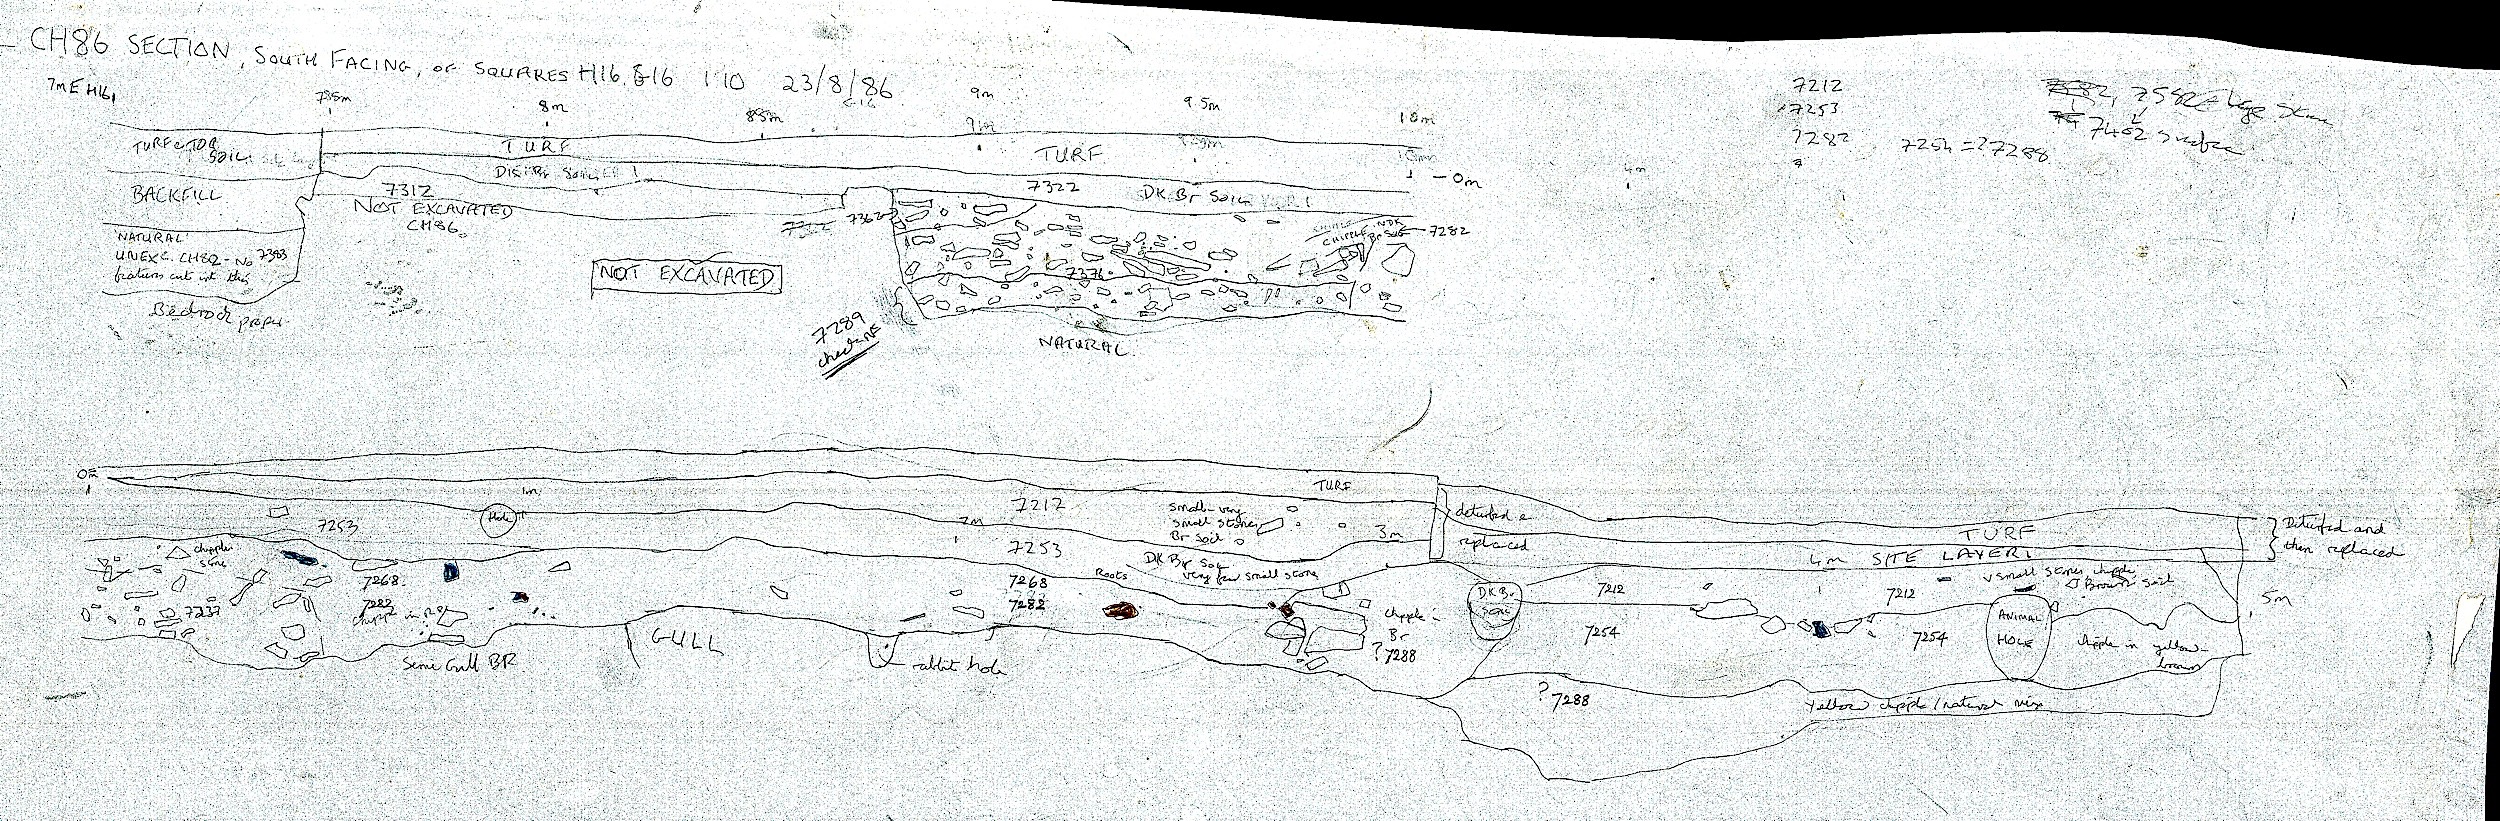 CH86 SECTION, SOUTH FACING, OF SQUARES H16 & G16 1:10 23/8/86
G16
7m E H16
7.5m
8m
8.5m
9m
9m
9.5m
10m
10m
-0m
4m
7212
7253
7282
7254 =? 7288
7462 surface
TURF & TOP
SOIL
TURF
TURF
BACKFILL
7312
NOT EXCAVATED
CH86
7322
DK Br SOIL
7362
CHIPPLE
7282
'NATURAL'
UNEXC. CH82 - No 7383
features cut into this
Bedrock proper
NOT EXCAVATED
7376
7289
check NF
NATURAL
0m
1m
2m
3m
4m
5m
TURF
7212
small - very
small stones
Br soil
deturfed &
replaced
TURF
SITE LAYER 1
Deturfed and
then replaced
Hole
7253
7253
DK Br Soil
very few small stone
chipple
stone
7268
7282
chipp in
7237
7268
7282
Roots
chipple in
Br
? 7288
DK Br
SOIL
7212
7254
7212
v small stones chipple
Brown Soil
7254
ANIMAL
HOLE
chipple in yellow-
brown
Some Gull BR
GULL
rabbit hole
? 7288
Yellow chipple / natural mix